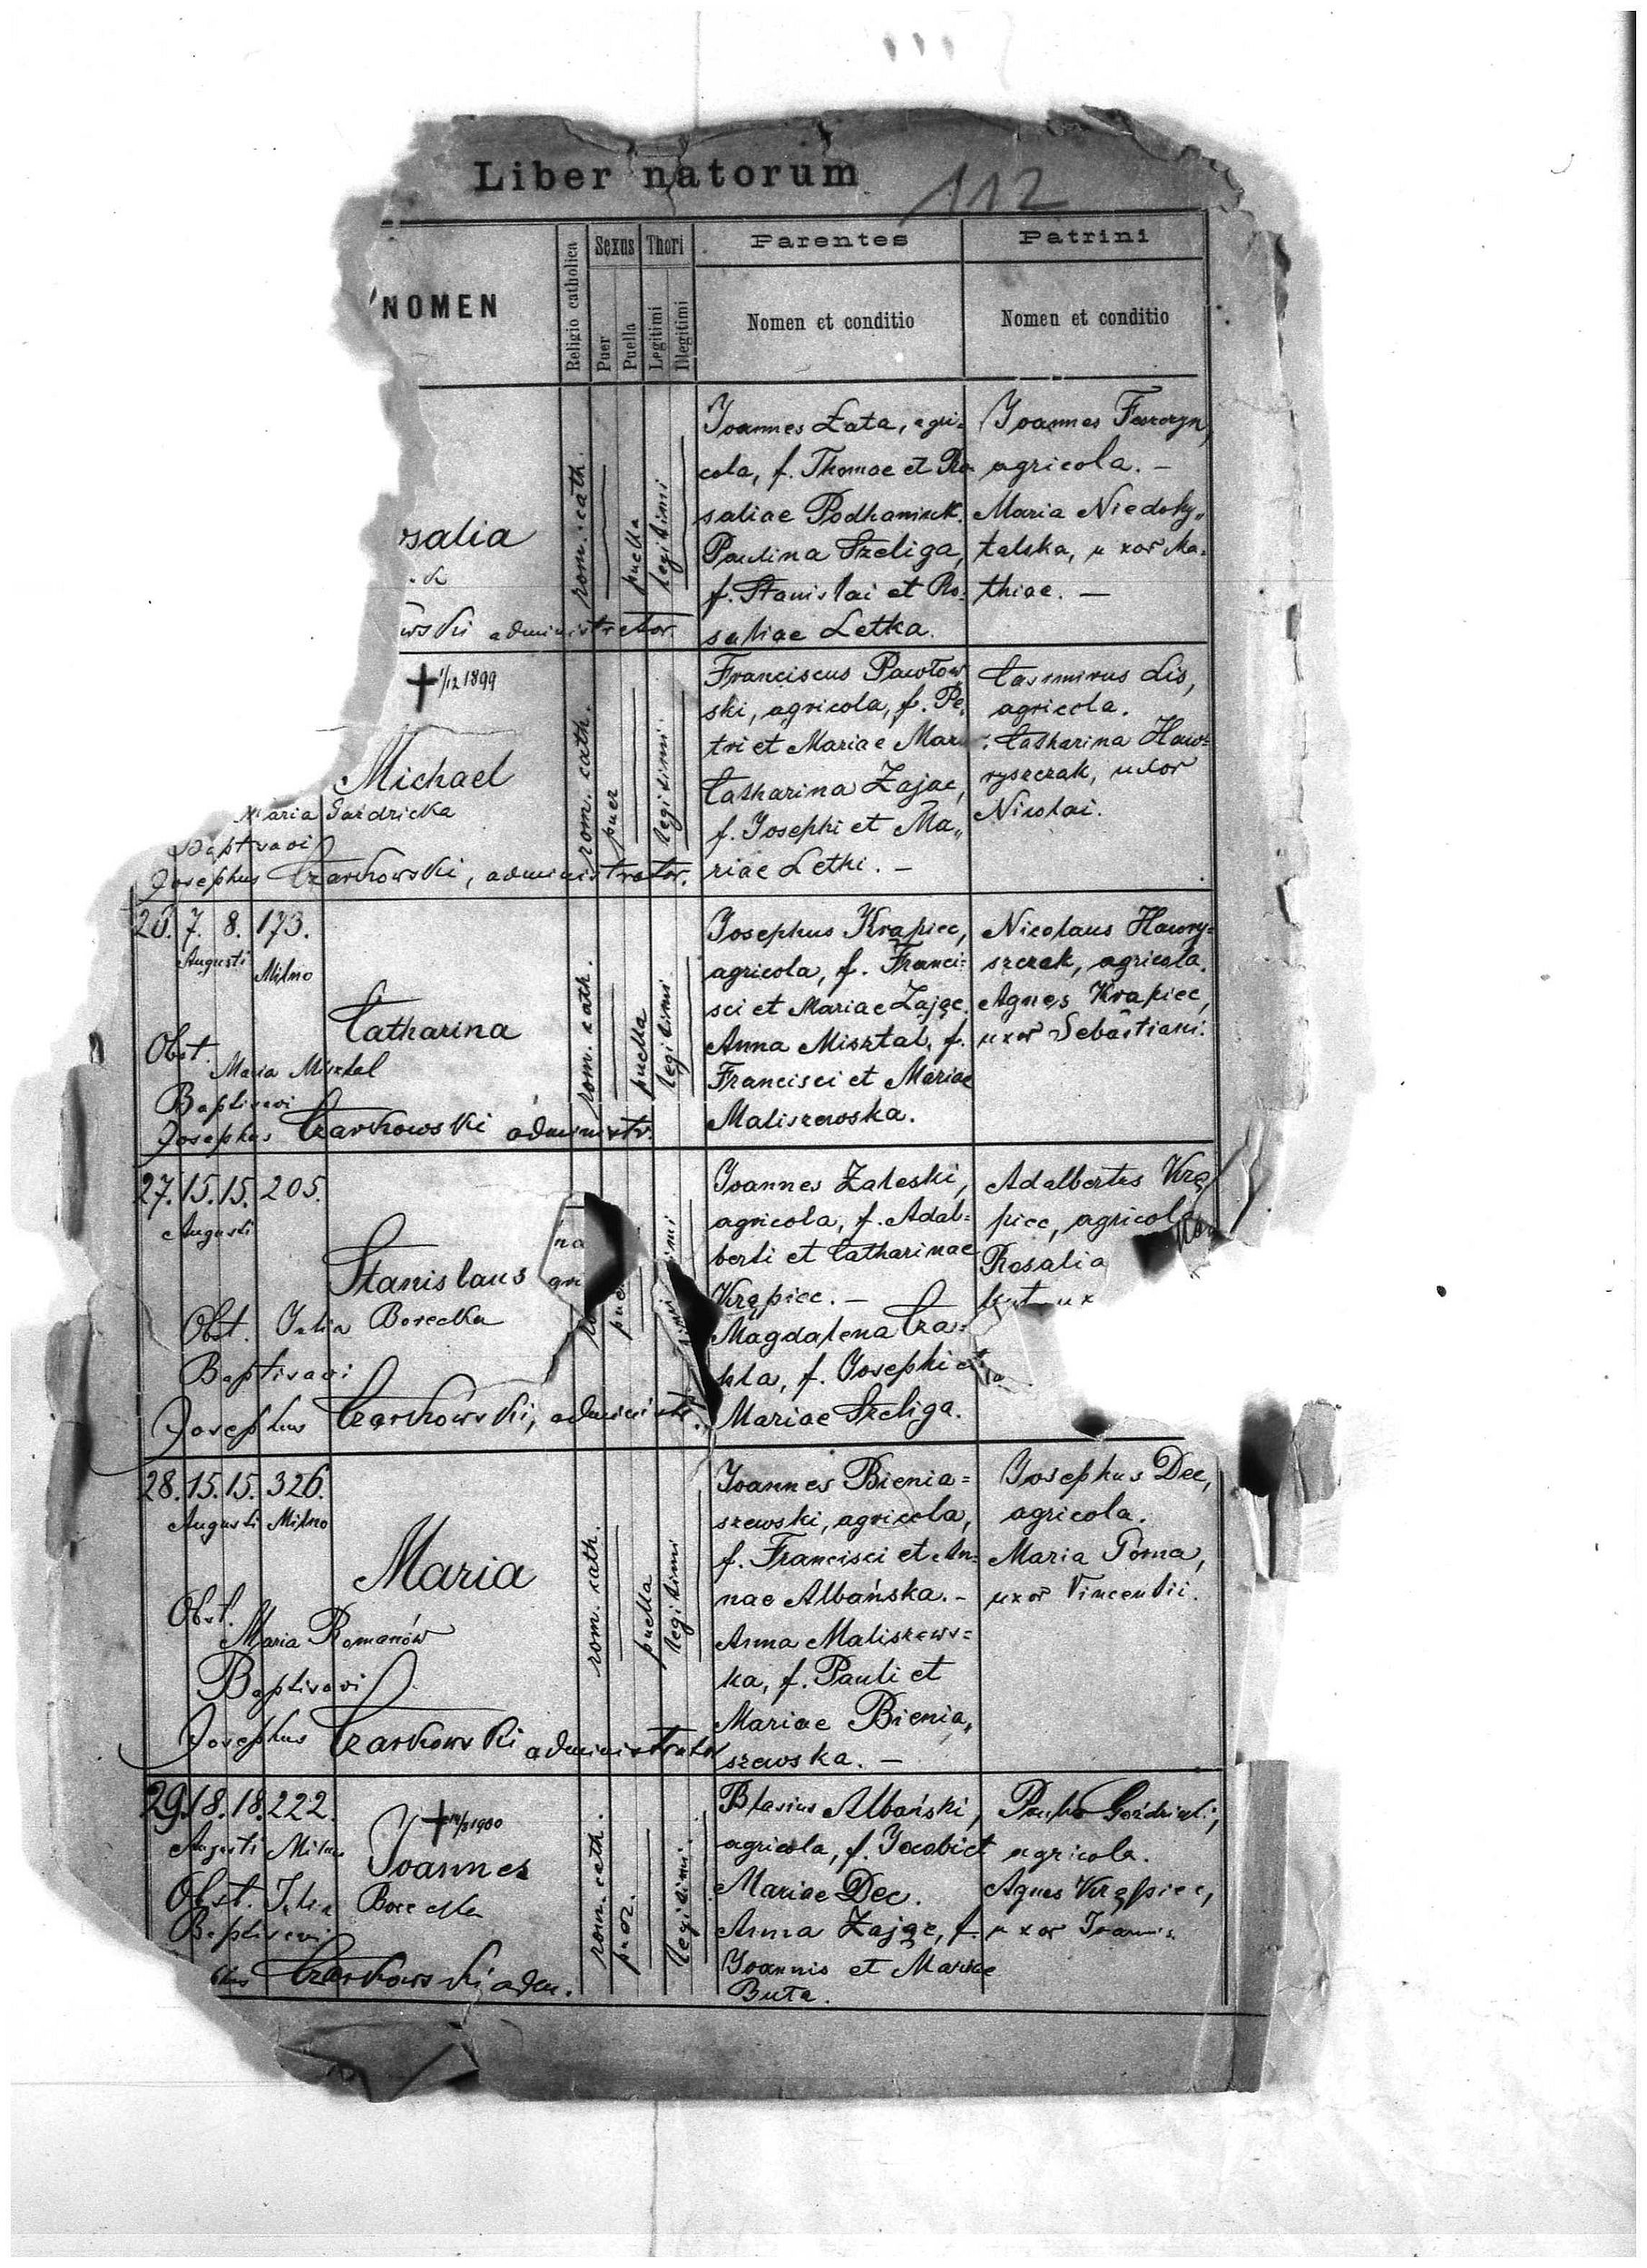 Liber natorum
112
NOMEN
Religio catholica
Sexus
Thori
Puer
Puella
Legitimi
Illegitimi
Parentes
Patrini
Nomen et conditio
Nomen et conditio
salia
wski administrator.
rom. cath.
puella
legitimi
Joannes Łata, agri=
cola, f. Thomae et Ro
saliae Podhaniuk.
Paulina Szeliga,
f. Stanislai et Ro=
saliae Letka.
Joannes
agricola. —
Maria Niedoky„
talska, uxor Ma=
thiae. —
1/12 1899
Michael
Maria Gaździcka
Baptisavi
Josephus Czarkowski, administrator.
rom. cath.
puer
legitimi.
Franciscus Pawłow
ski, agricola, f. Pe„
tri et Mariae
Catharina Zając,
f. Josephi et Ma„
riae Letki. —
Casimirus Lis,
agricola.
Catharina Haw=
ryszczak, uxor
Nicolai.
26. 7. 8. 173.
Augusti
Milno
Catharina
Obst.
Maria Misztal
Baptisavi
Josephus Czarkowski administr.
rom. cath.
puella
legitimi
Josephus Krąpiec,
agricola, f. Franci=
sci et Mariae Zając.
Anna Misztal, f.
Francisci et Mariae
Maliszewska.
Nicolaus Hawry=
szczak, agricola.
Agnes Krąpiec,
uxor Sebastiani.
27. 15. 15. 205.
Augusti
Stanislaus
Obst. Julia Borecka
Baptisavi
Josephus Czarkowski, administr.
Joannes Zaleski,
agricola, f. Adal=
berti et Catharinae
Krąpiec. —
Magdalena Cza=
pla, f. Josephi et
Mariae Szeliga.
Adalbertus Krą
piec, agricola
Rosalia
28. 15. 15. 326.
Augusti Milno
Maria
Obst.
Maria Romanów
Baptisavi
Josephus Czarkowski administrator
rom. cath.
puella
legitimi
Joannes Bienia=
szewski, agricola,
f. Francisci et An=
nae Albańska. -
Anna Maliszews=
ka, f. Pauli et
Mariae Bienia„
szewska. —
Josephus Dec,
agricola.
Maria Poma,
uxor Vincentii.
29. 18. 18. 222.
Augusti Milno
1900
Joannes
Obst. Julia Borecka
Baptisavi
Czarkowski adm.
rom. cath.
puer.
legitimi.
Blasius Albański,
agricola, f. Jacobi et
Mariae Dec.
Anna Zając, f.
Joannis et Mariae
Buta.
agricola.
Agnes Krąpiec,
uxor Joannis.